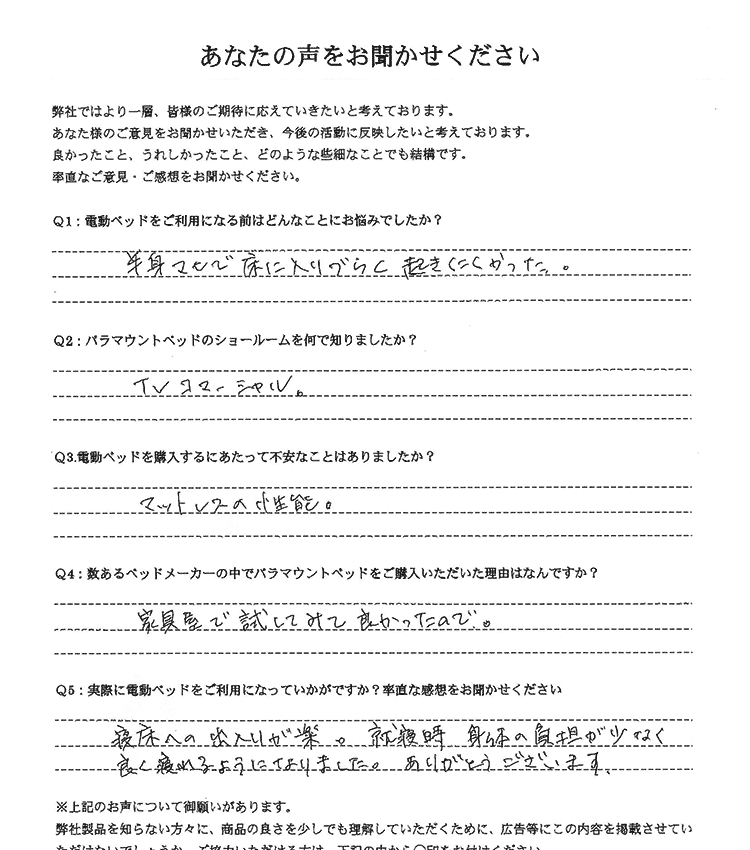 あなたの声をお聞かせください
弊社ではより一層、皆様のご期待に応えていきたいと考えております。
あなた様のご意見をお聞かせいただき、今後の活動に反映したいと考えております。
良かったこと、うれしかったこと、どのような些細なことでも結構です。
率直なご意見・ご感想をお聞かせください。
Q1：電動ベッドをご利用になる前はどんなことにお悩みでしたか？
半身マヒで床に入りづらく起きにくかった。
Q2：パラマウントベッドのショールームを何で知りましたか？
TVコマーシャル。
Q3.電動ベッドを購入するにあたって不安なことはありましたか？
マットレスの性能。
Q4：数あるベッドメーカーの中でパラマウントベッドをご購入いただいた理由はなんですか？
家具屋で試してみて良かったので。
Q5：実際に電動ベッドをご利用になっていかがですか？率直な感想をお聞かせください
寝床への出入りが楽。就寝時身体の負担が少なく
良く寝れるようになりました。ありがとうございます。
※上記のお声について御願いがあります。
弊社製品を知らない方々に、商品の良さを少しでも理解していただくために、広告等にこの内容を掲載させてい
ただけないでしょうか。ご協力いただける方は、下記の中から○印をお付けください